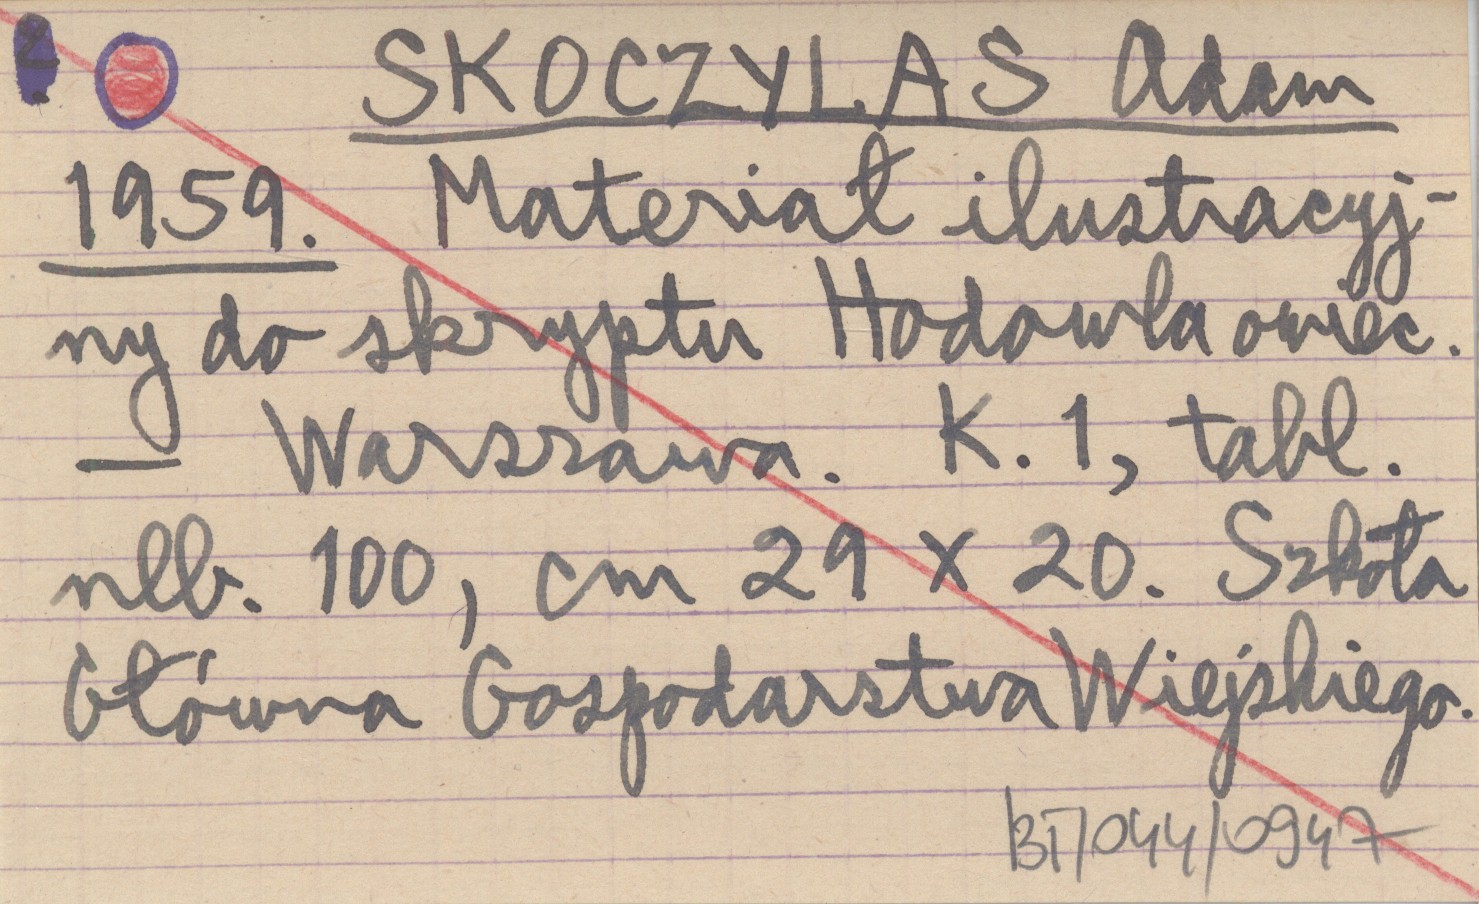 SKOCZYLAS Adam
1959. Materiał ilustracyj-
ny do skryptu Hodowla owiec.
— Warszawa. K. 1, tabl.
nlb. 100, cm 29 x 20. Szkoła
Główna Gospodarstwa Wiejskiego.
BT/044/0947